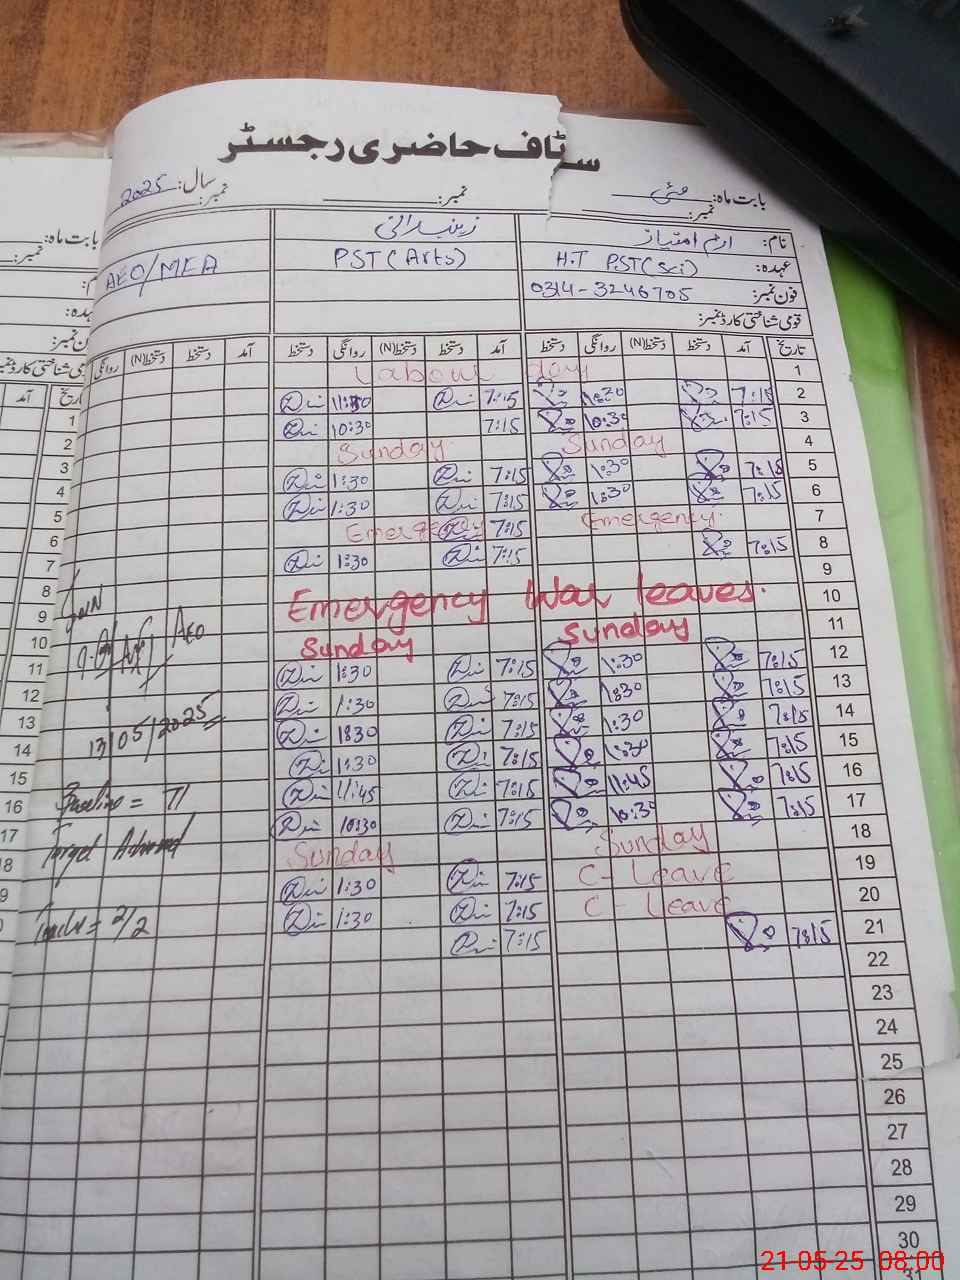 سٹاف حاضری رجسٹر
بابت ماہ: مئی نمبر: سال: 2025
نمبر: نمبر:
نام: ارم امتیاز
عہدہ: H.T PST(Sci) PST(Arts) AEO/MEA
فون نمبر: 0314-3246705
قومی شناختی کارڈ نمبر:
تاریخ آمد دستخط دستخط(N) روانگی دستخط آمد دستخط دستخط(N) روانگی دستخط آمد دستخط دستخط(N) روانگی
1 Labour day
2 7:15 10:30 7:15 11:30
3 7:15 10:30 7:15 10:30
4 Sunday Sunday
5 7:15 1:30 7:15 1:30
6 7:15 1:30 7:15 1:30
7 Emergency. Emergency 7:15
8 7:15 7:15 1:30
9
10 Emergency War leaves.
11 Sunday Sunday
12 7:15 1:30 7:15 1:30
13 7:15 1:30 7:15 1:30
14 7:15 1:30 7:15
15 7:15 1:30 7:15 1:30
16 7:15 11:45 7:15 11:45
17 7:15 10:30 7:15 10:30
18 Sunday Sunday
19 C- Leave 7:15 1:30
20 C- Leave 7:15 1:30
21 7:15 7:15
22
23
24
25
26
27
28
29
30
31
AEO
13/05/2025
Baseline =
Target
= 2/2
بابت ماہ:
نمبر:
آمد تاریخ
1
2
3
4
5
6
7
8
9
10
11
12
13
14
15
16
17
18
21-05-25 08:00